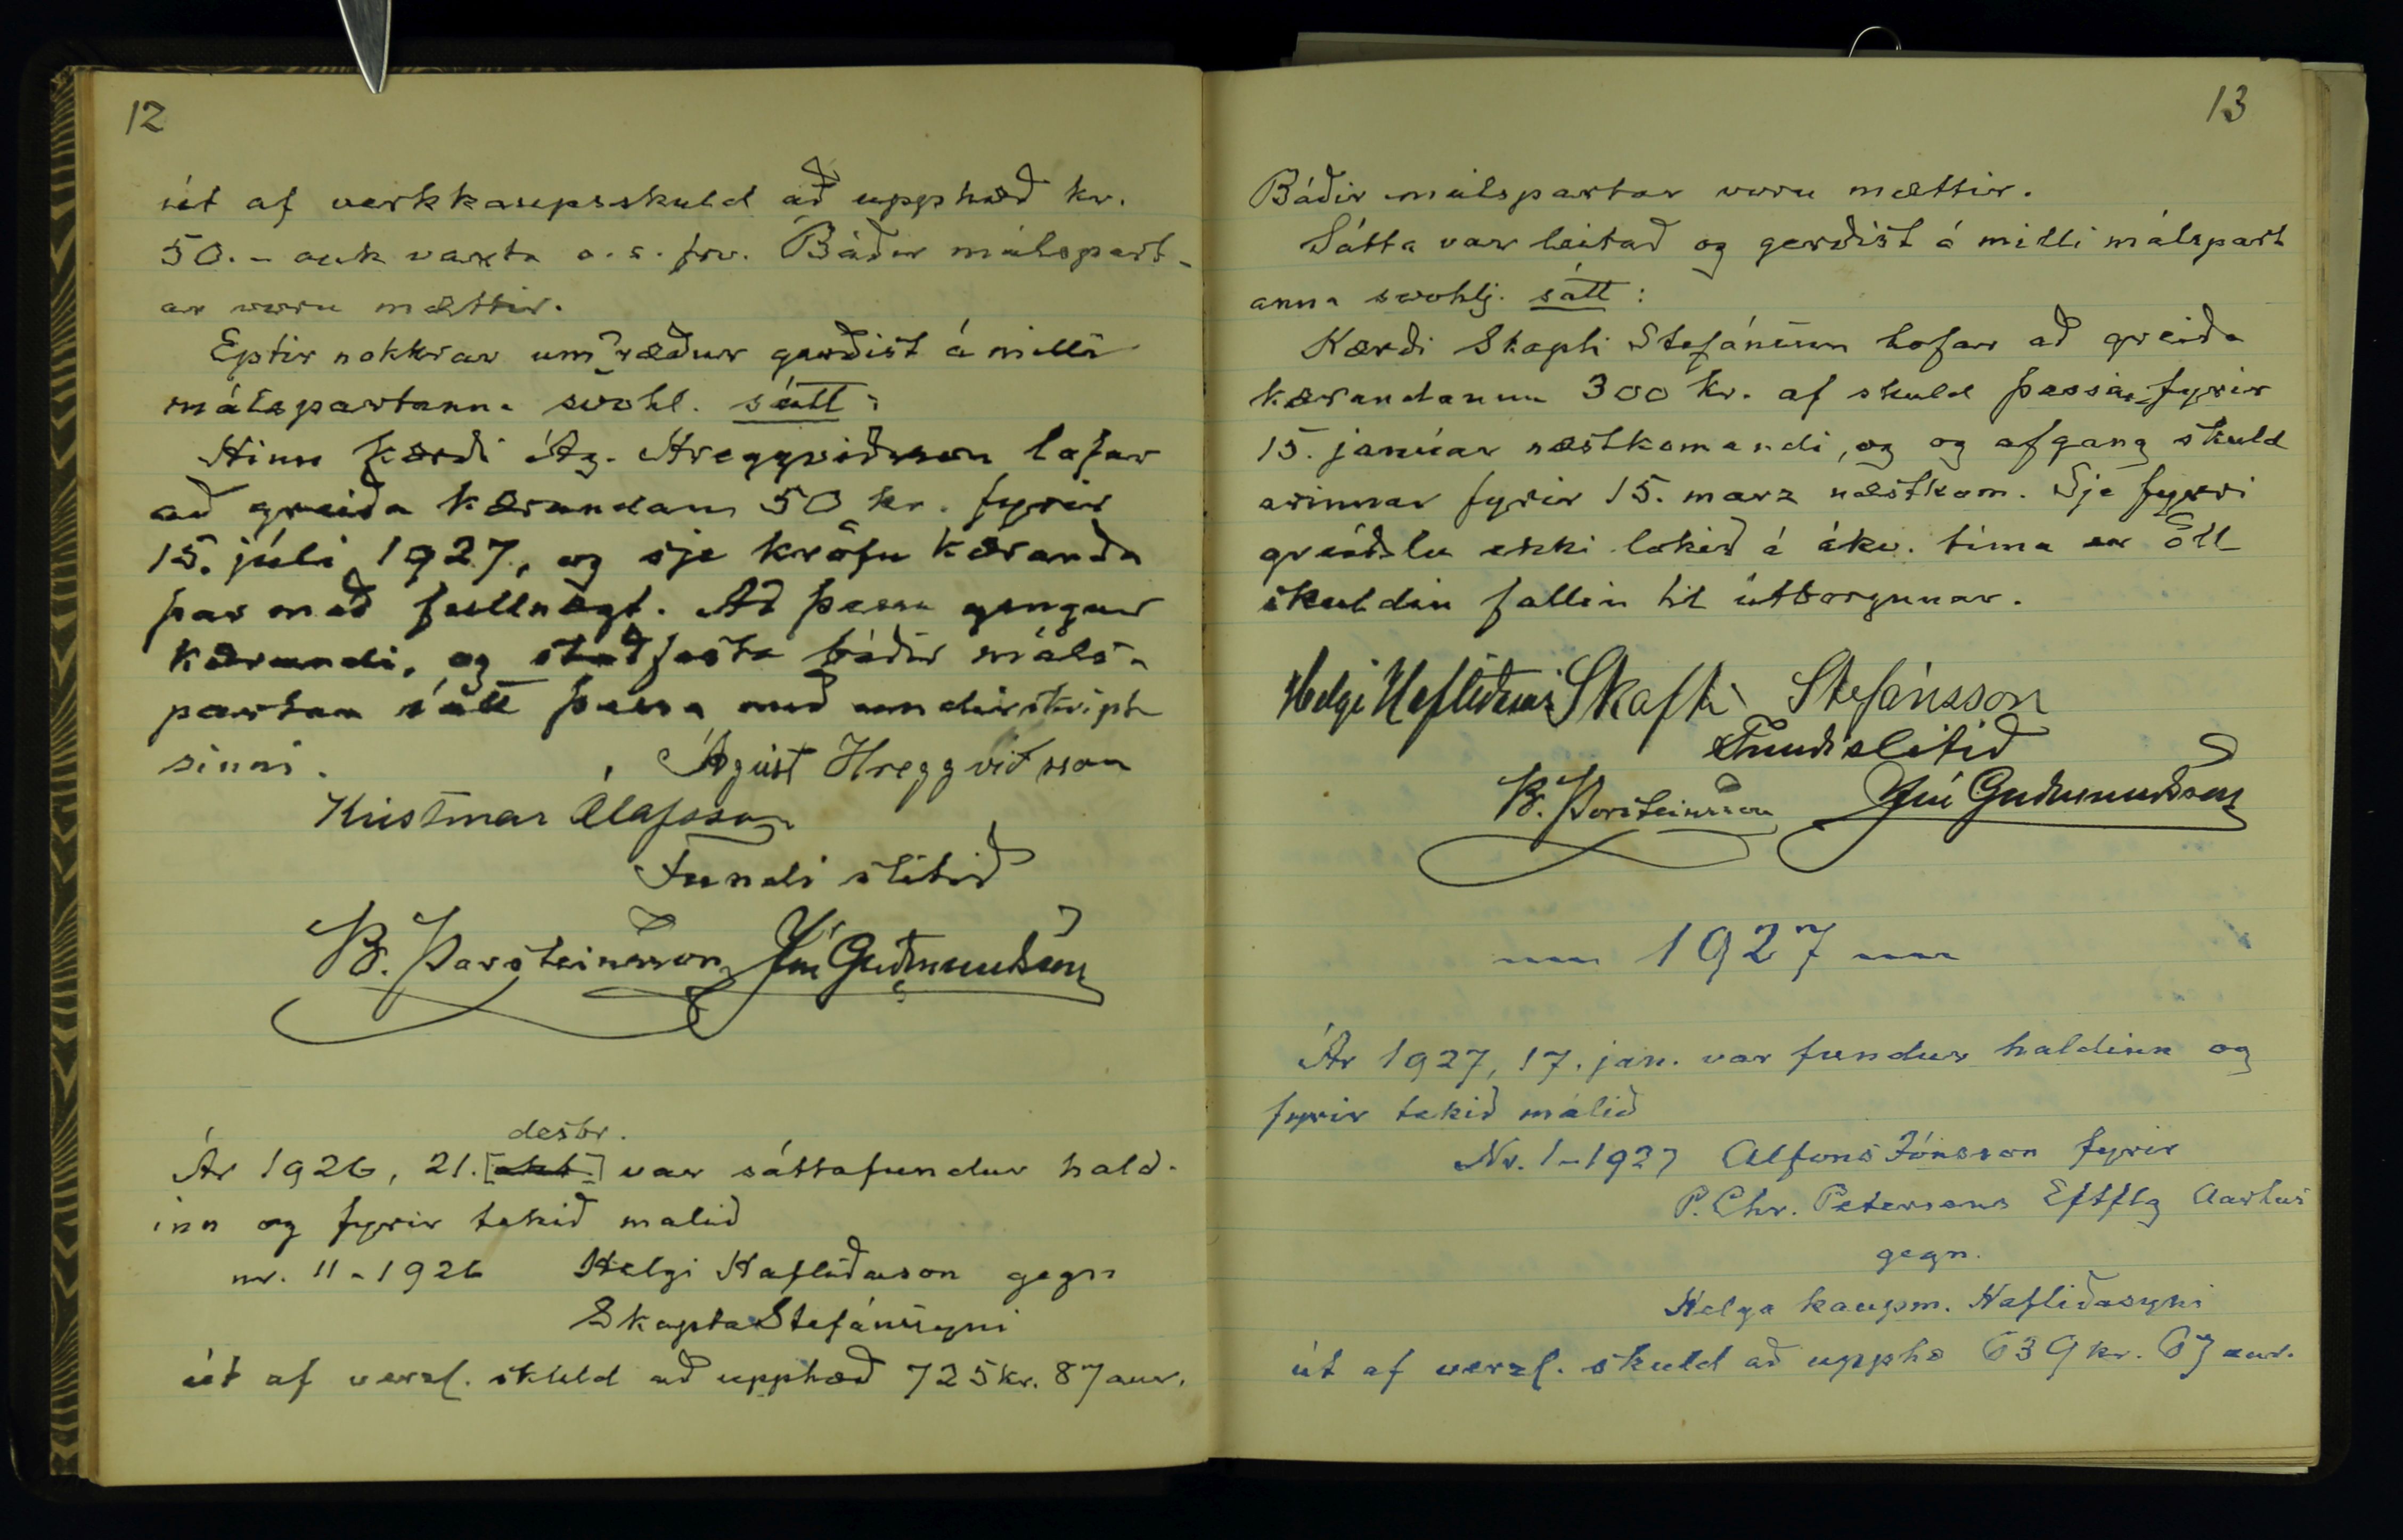 12
út af verkkaupsskuld að upphæð kr.
50.- auk vaxta o.s.frv. Báðir málspart-
ar voru mættir.
Eptir nokkrar umræður gerðist á milli
málspartanna svohl. sátt:
Hinn kærði Ág. Hreggviðsson lofar
að greiða kærandanum 50 kr. fyrir
15. júlí 1927, og sje kröfu kæranda
þar með fullnægt. Að þessu gengur
kærandi, og staðfesta báðir máls-
partar sátt þessa með undirskript
sinni.
Ágúst Hreggviðsson
Kristmar Ólafsson
Fundi slitið
B. Þorsteinsson Jón Guðmundsson
desbr.
Ár 1926, 21. [okt.] var sáttafundur hald-
inn og fyrir tekið malið
nr. 11-1926 Helgi Hafliðason gegn
Skapta Stefánssyni
út af verzl. skuld að upphæð 725 kr. 87 aur.
13
Báðir málspartar voru mættir.
Sátta var leitað og gerðist á milli málspart
anna svohlj. sátt:
Kærði Skapti Stefánsson lofar að greiða
kærandanum 300 kr. af skuld þessari fyrir
15. janúar næstkomandi, og og afgang skuld
arinnar fyrir 15. marz næstkom. Sje fyrri
greiðslu ekki lokið á ákv. tíma er öll
skuldin fallin til útborgunar.
Helgi Hafliðason Skafti Stefánsson
Fundi slitið
B. Þorsteinsson Jón Guðmundsson
1927
Ár 1927, 17. jan. var fundur haldinn og
fyrir tekið málið
Nr. 1-1927 Alfons Jónsson fyrir
P. Chr. Petersens Eftflg Aarhus
gegn.
Helga kaupm. Hafliðasyni
út af verzl. skuld að upphæ 639 kr. 67 aur.